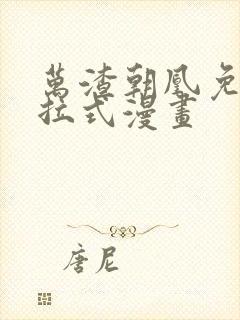 萬渣朝凰免
拉式漫畫
唐尼